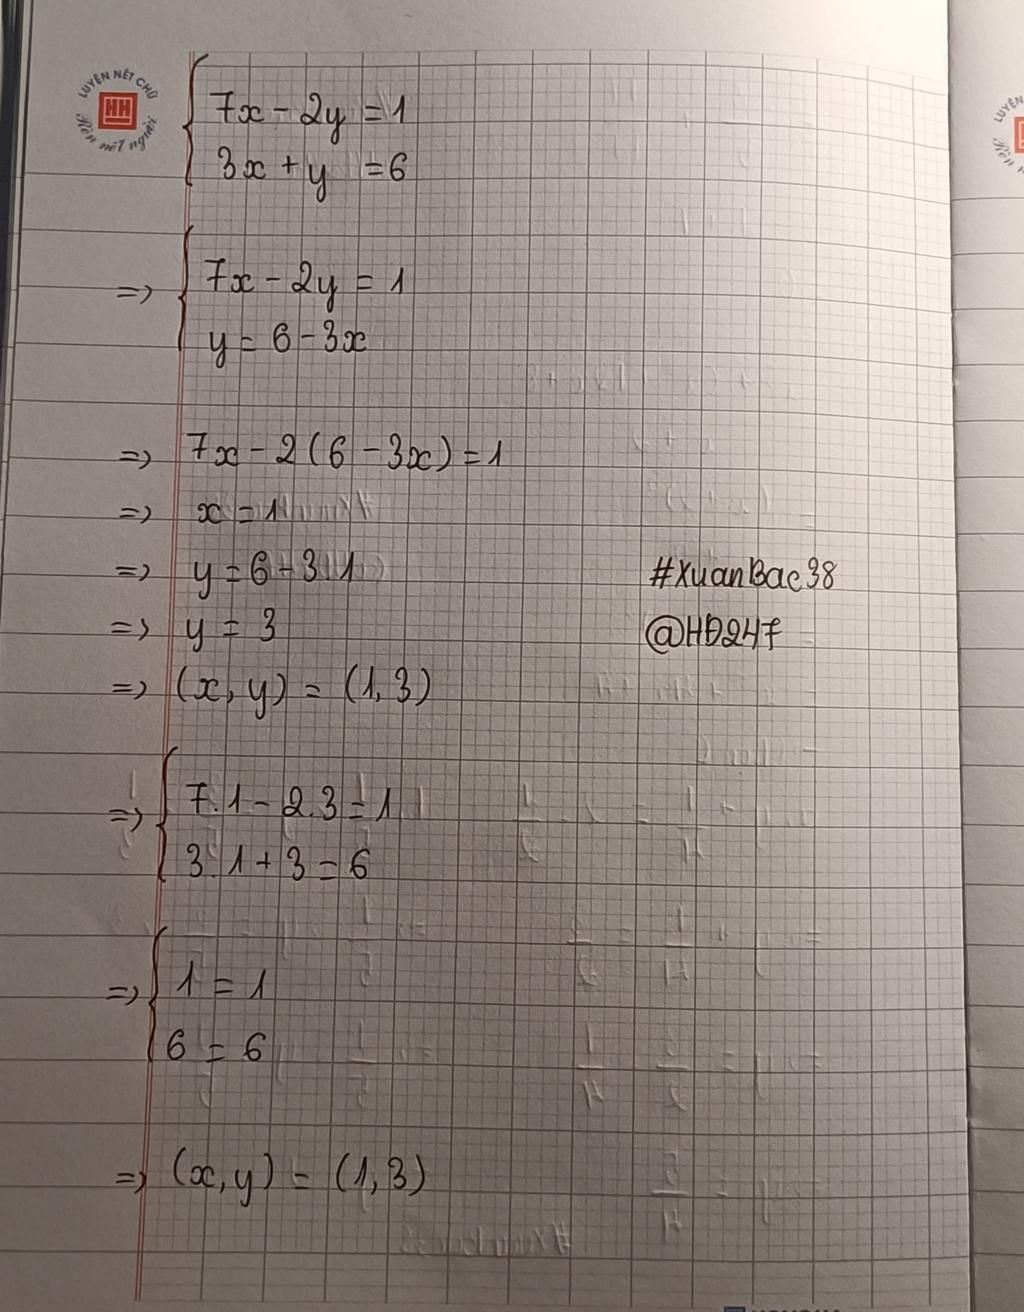 LUYỆN NÉT CHỮ
NH
Rèn nết người
7x - 2y = 1
3x + y = 6
=> 7x - 2y = 1
y = 6 - 3x
=> 7x - 2(6 - 3x) = 1
=> x = 1
=> y = 6 - 3.1
#XuanBac38
=> y = 3
@HD247
=> (x, y) = (1, 3)
=> 7.1 - 2.3 = 1
3.1 + 3 = 6
=> 1 = 1
6 = 6
=> (x, y) = (1, 3)
LUYỆN
Rèn n